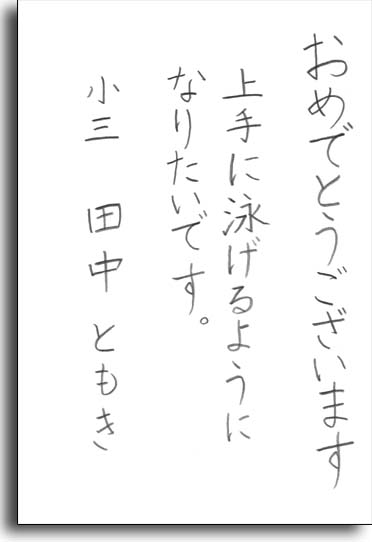 おめでとうございます
上手に泳げるように
なりたいです。
小三 田中 ともき